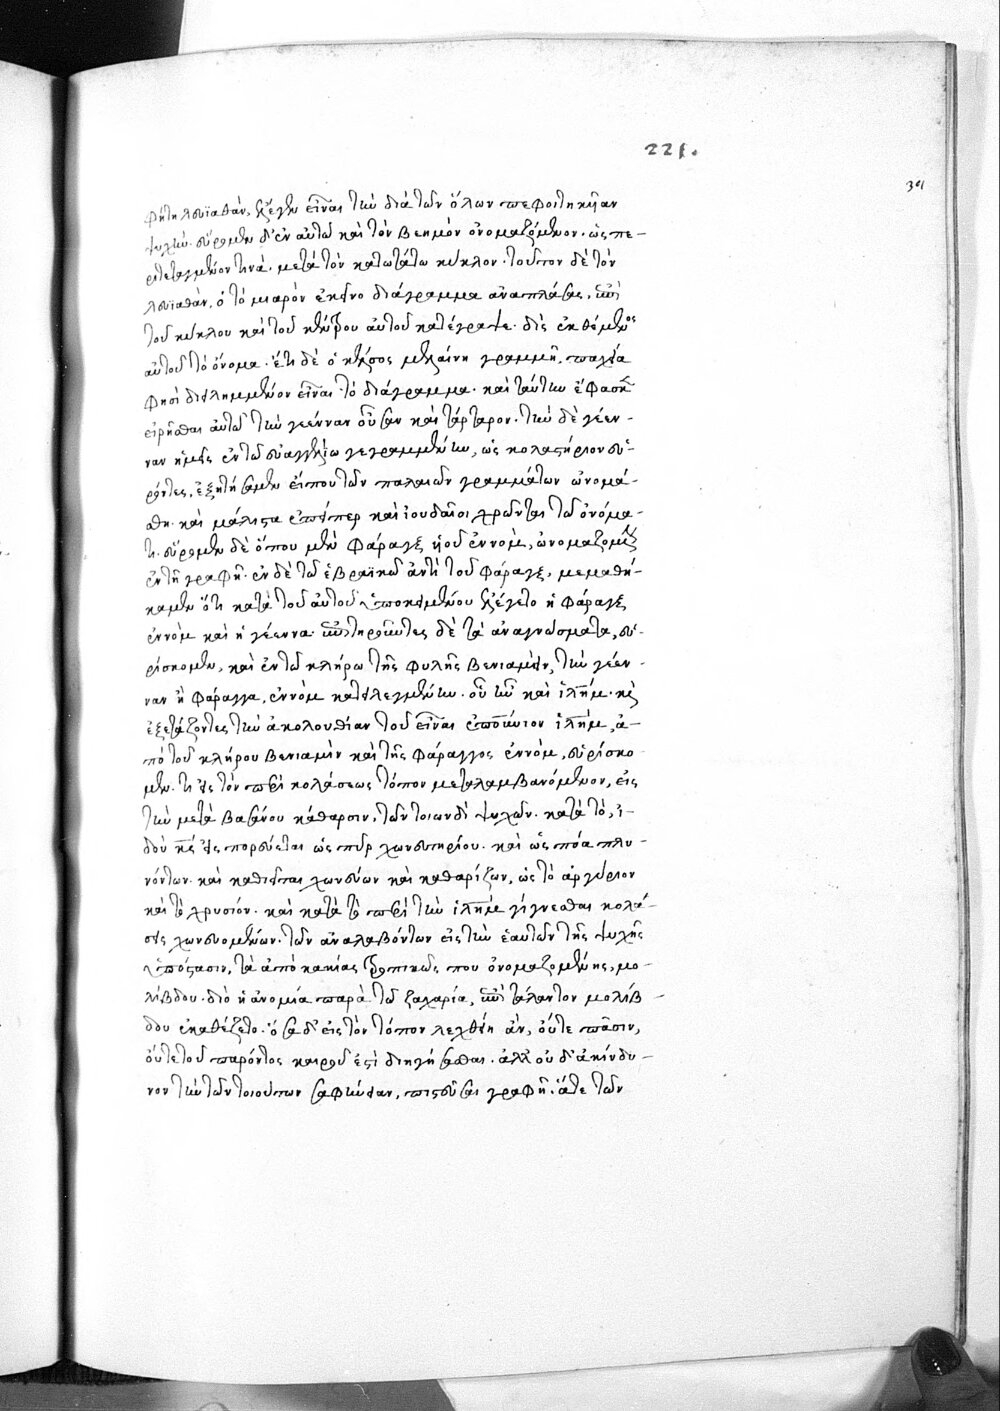 221.
39
φήτῃ λουϊαθάν, ἐλέγεν εἶναι τὴν διὰ τῶν ὅλων πεφοιτηκυῖαν
ψυχήν. εὕρομεν δ' ἐν αὐτῷ καὶ τὸν βεημὸν ὀνομαζόμενον. ὡς πε-
ριτεταγμένον τινὰ. μετὰ τὸν κατωτάτω κύκλον. τοῦτον δὲ τὸν
λουϊαθὰν, ὁ τὸ μιαρὸν ἐκεῖνο διάγραμμα ἀναπλάσας, ἐπὶ
τοῦ κύκλου καὶ τοῦ κέντρου αὐτοῦ κατέγραψε. δὶς ἐκθέμενος
αὐτοῦ τὸ ὄνομα. ἔτι δὲ ὁ κέλσος μελαίνη γραμμῇ, παχεία
φησὶ διειλημμένον εἶναι τὸ διάγραμμα. καὶ ταύτην ἔφασκεν
εἰρῆσθαι αὐτῷ τὴν γέενναν οὖσαν καὶ τάρταρον. τὴν δὲ γέεν-
ναν ἡμεῖς ἐν τῷ εὐαγγελίῳ γεγραμμένην, ὡς κολαστήριον εὑ-
ρόντες, ἐζητήσαμεν εἴπου τῶν παλαιῶν γραμμάτων ὠνομά-
σθη. καὶ μάλιστα ἐπείπερ καὶ ἰουδαῖοι χρῶνται τῷ ὀνόμα-
τι. εὕρομεν δὲ ὅπου μὲν φάραγξ υἱοῦ ἐννὸμ, ὠνομαζομένης
ἐν τῇ γραφῇ. ἐν δὲ τῷ ἑβραϊκῷ ἀντὶ τοῦ φάραγξ, μεμαθή-
καμεν ὅτι κατὰ τοῦ αὐτοῦ ὑποκειμένου ἐλέγετο ἡ φάραγξ
ἐννὸμ καὶ ἡ γέεννα. ἐπιτηροῦντες δὲ τὰ ἀναγνώσματα, εὑ-
ρίσκομεν, καὶ ἐν τῷ κλήρῳ τῆς φυλῆς βενιαμεὶν, τὴν γέεν-
ναν ἢ φάραγγα, ἐννὸμ κατειλεγμένην. οὗ ἦν καὶ ἱλήμ. καὶ
ἐξετάζοντες τὴν ἀκολουθίαν τοῦ εἶναι ἐπουράνιον ἱλήμ, ἀ-
πὸ τοῦ κλήρου βενιαμὶν καὶ τῆς φάραγγος ἐννὸμ, εὑρίσκο-
μεν. τι εἰς τὸν περὶ κολάσεως τόπον μεταλαμβανόμενον, εἰς
τὴν μετὰ βασάνου κάθαρσιν, τῶν τοιωνδὶ ψυχῶν. κατὰ τὸ, ἰ-
δοὺ κς εἰσπορεύεται ὡς πῦρ χωνευτηρίου. καὶ ὡς πόα πλυ-
νόντων. καὶ καθιεῖται χωνεύων καὶ καθαρίζων, ὡς τὸ ἀργύριον
καὶ τὸ χρυσίον. καὶ κατὰ τὸ περὶ τὴν ἱλήμ γίγνεσθαι κολά-
σεις χωνευομένων. τῶν ἀναλαβόντων εἰς τὴν ἑαυτῶν τῆς ψυχῆς
ὑπόστασιν, τὰ ἀπὸ κακίας τροπικῶς που ὀνομαζομένης, μο-
λίβδου. διὸ ἡ ἀνομία παρὰ τῷ ζαχαρία, ἐπὶ τάλαντον μολίβ-
δου ἐκαθέζετο. ὅσα δ' εἰς τὸν τόπον λεχθείη ἂν, οὔτε πᾶσιν,
οὔτε τοῦ παρόντος καιροῦ ἐστὶ διηγήσασθαι. ἀλλ' οὐδ' ἀκίνδυ-
νον τὴν τῶν τοιούτων σαφήνειαν, πιστεῦσαι γραφῇ. ἅτε τῶν